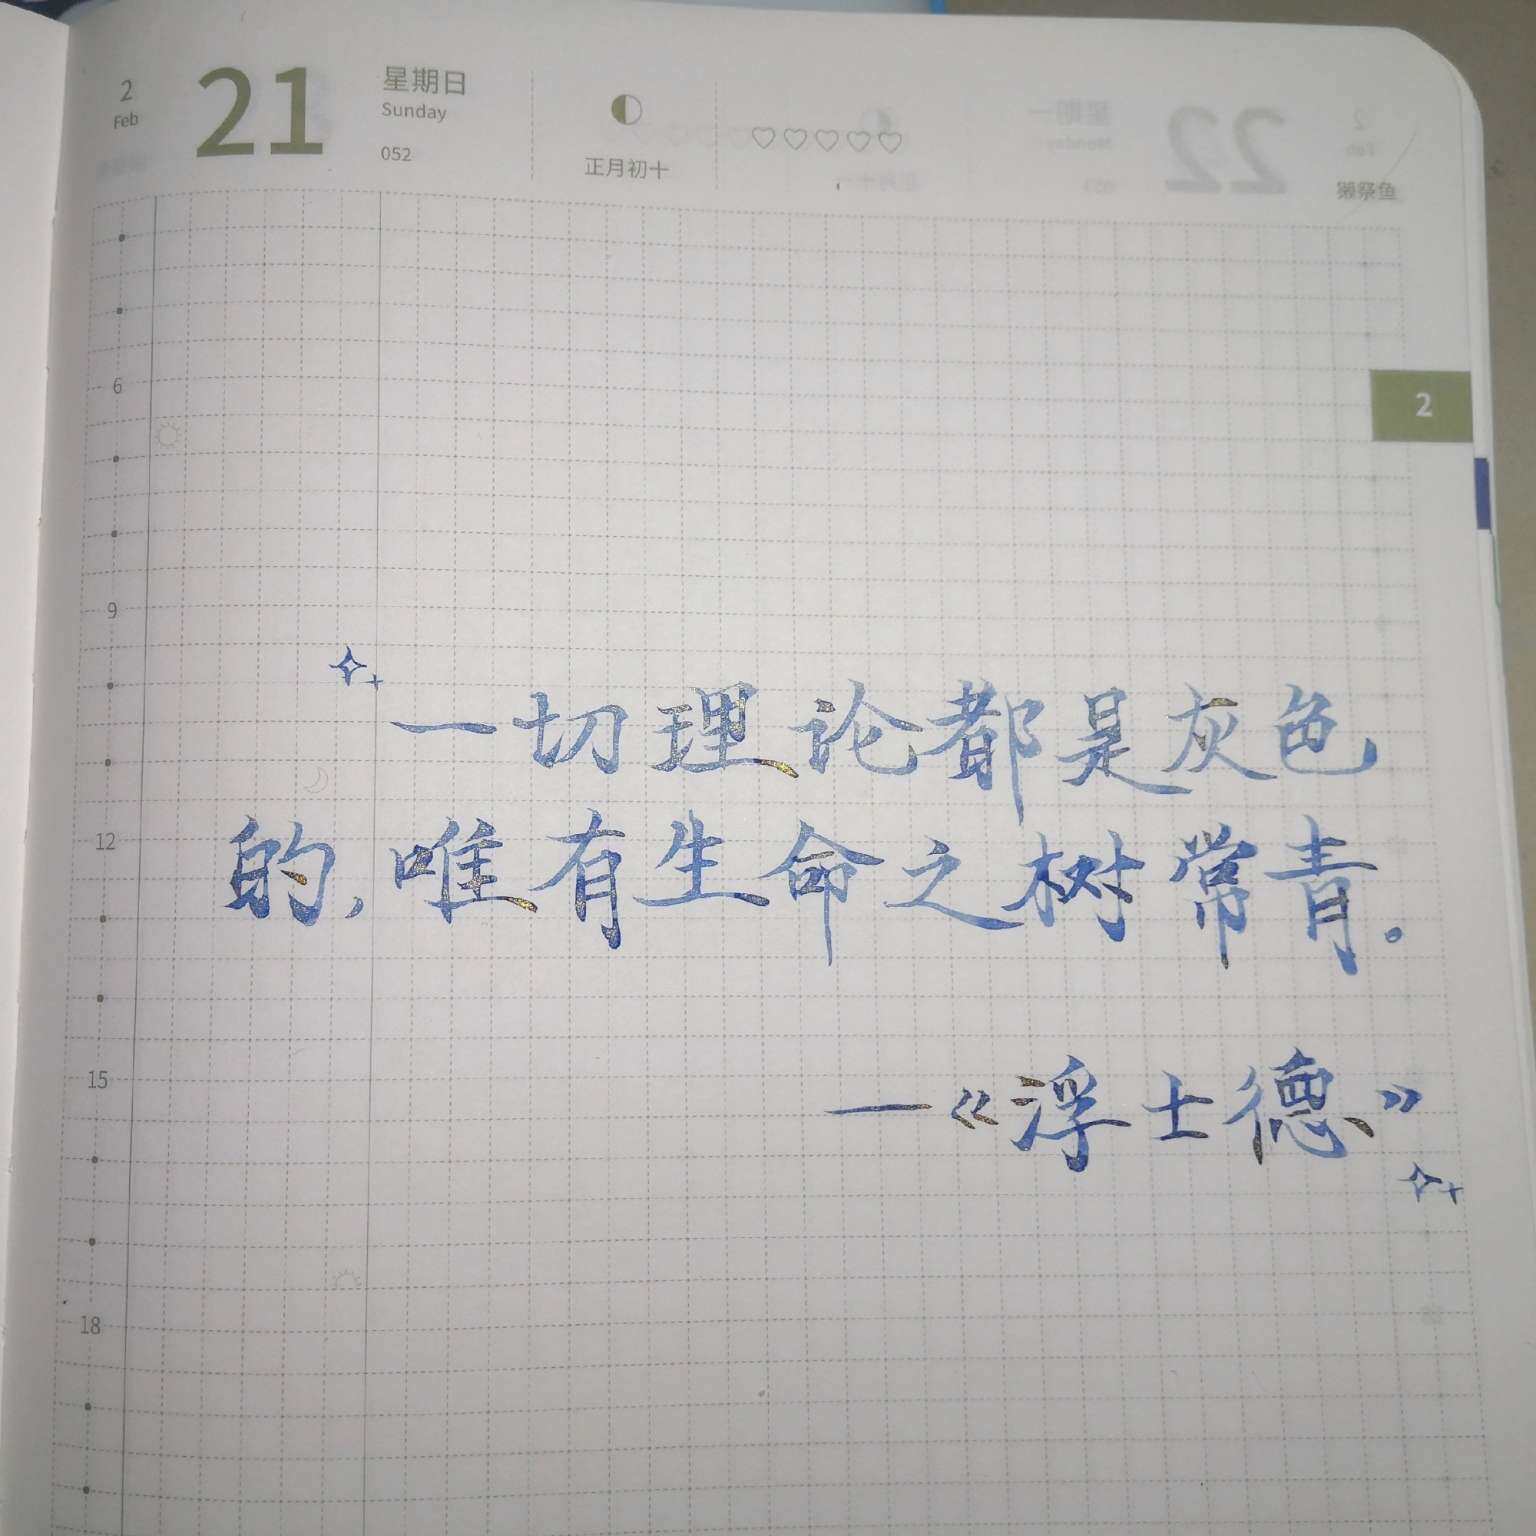 2 21 星期日
Feb Sunday
052 正月初十
獭祭鱼
2
6
9
12
15
18
一切理论都是灰色
的,唯有生命之树常青。
—《浮士德》